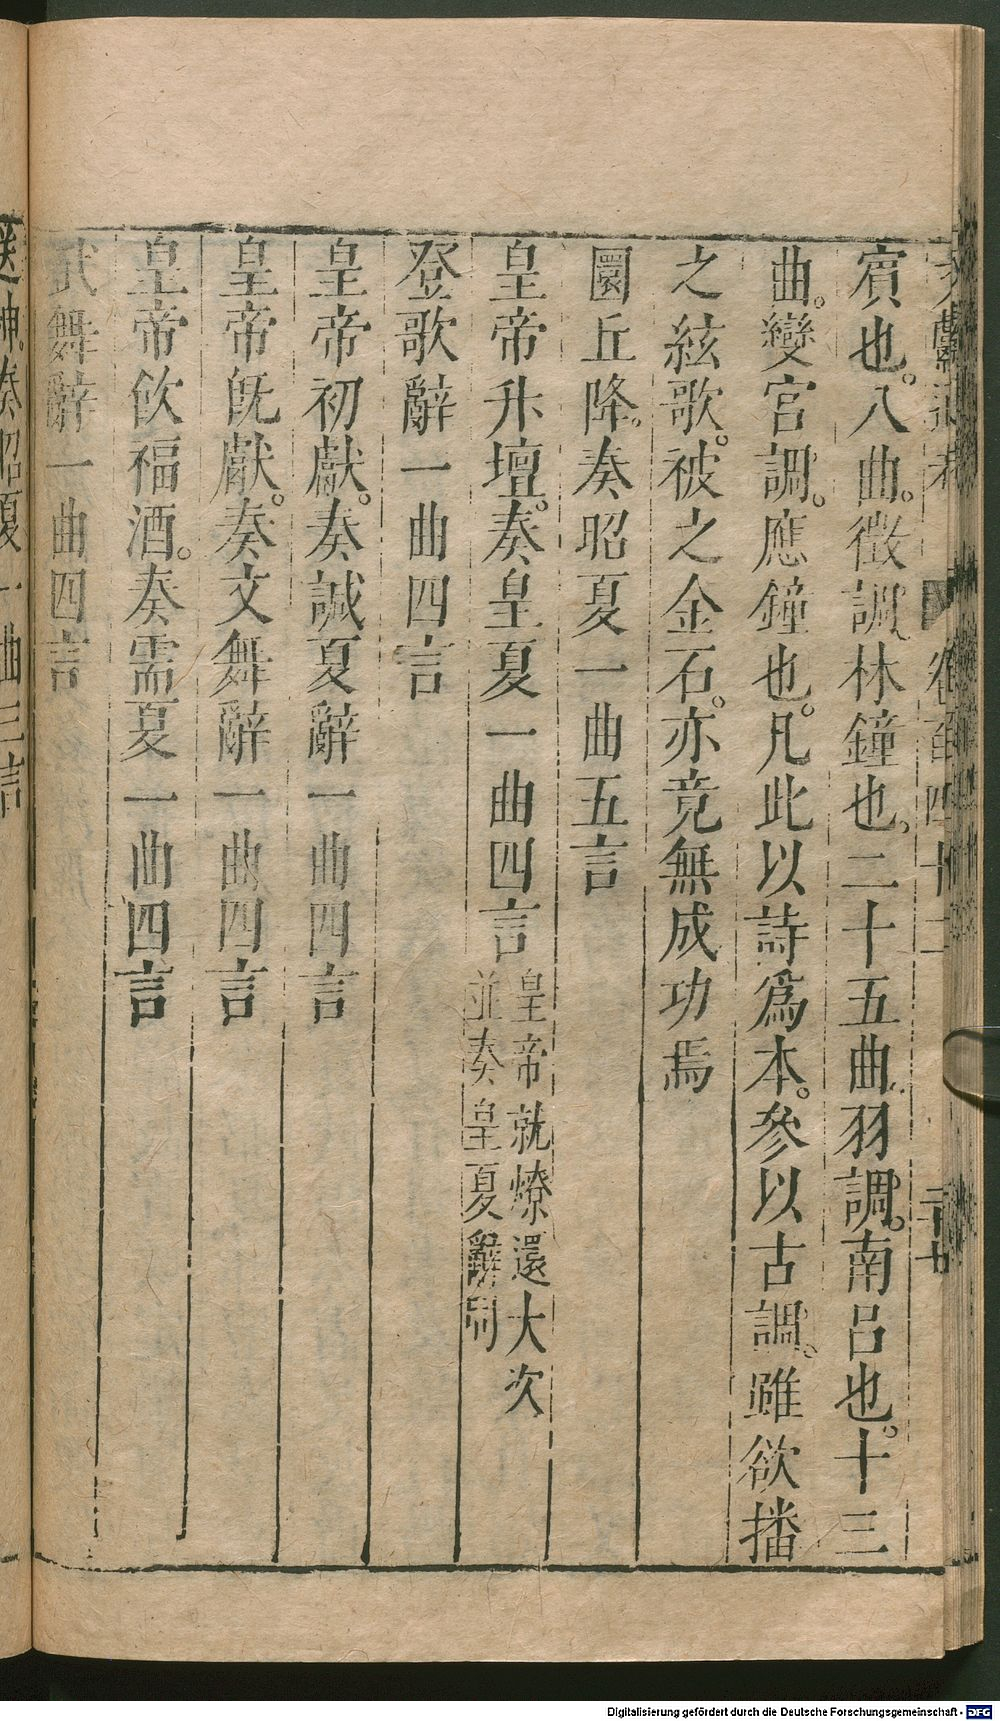 文獻通考 卷百四十二 二十七
賓也。八曲。徵調。林鐘也。二十五曲。羽調。南呂也。十三
曲。變宮調。應鐘也。凡此以詩爲本。參以古調。雖欲播
之絃歌。被之金石。亦竟無成功焉
圜丘降。奏昭夏一曲五言
皇帝升壇。奏皇夏一曲四言 皇帝就燎還大次
並奏皇夏辭同
登歌辭一曲四言
皇帝初獻。奏諴夏辭一曲四言
皇帝旣獻。奏文舞辭一曲四言
皇帝飮福酒。奏需夏一曲四言
武舞辭一曲四言
送神奏昭夏一曲三言
Digitalisierung gefördert durch die Deutsche Forschungsgemeinschaft - DFG